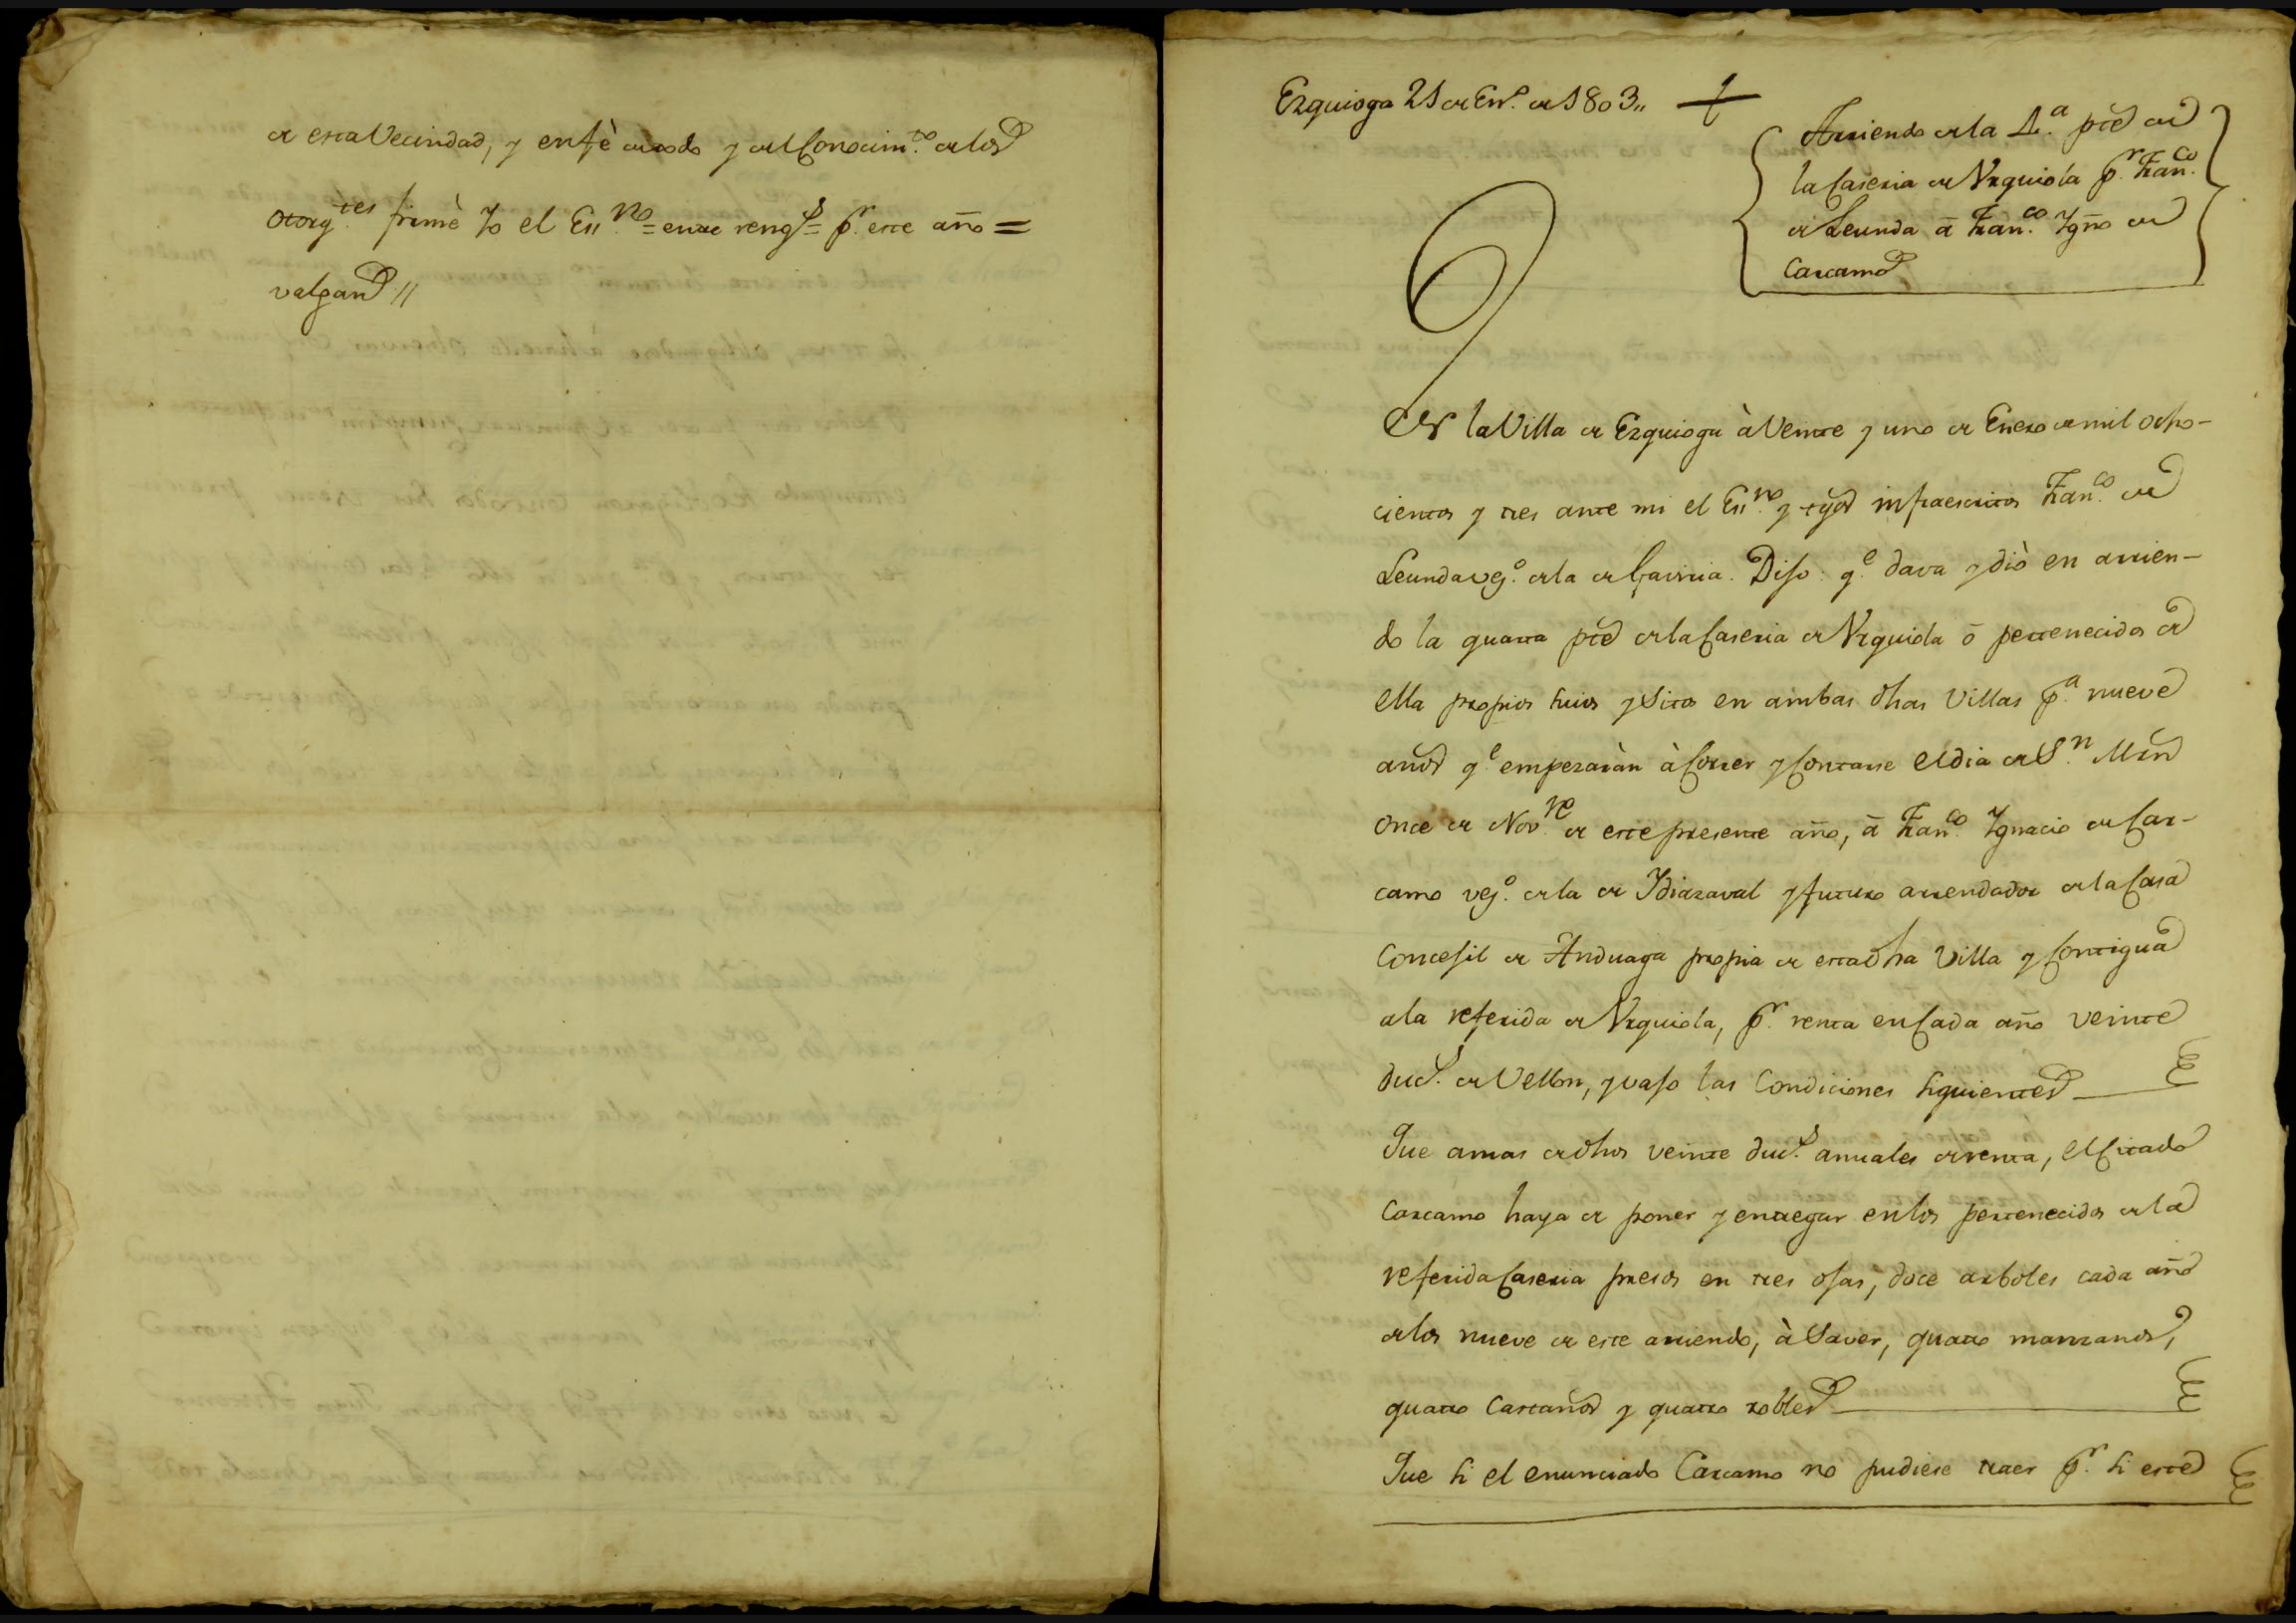 de esta Vecindad, y en fè de todo y del Conocim.to de los
otorg.tes firmè Yo el Ess.no = entre reng.s = p.r este año =
valgan //
Ezquioga 21 de En.o de 1803,,
Arriendo de la 4.a pte de
la Caseria de Vrquiola p.r Fran.co
de Leunda à Fran.co Ygn.o de
Carcamo
En la Villa de Ezquioga à Veinte y uno de Enero de mil ocho-
cientos y tres ante mi el Ess.no y tgos infraescritos Fran.co de
Leunda vez.o de la de Gaviria. Dijo: q.e dava y diò en arrien-
do la quarta pte de la Caseria de Vrquiola ò pertenecidos de
ella propios suios y Sitos en ambas dhas Villas p.a nueve
años q.e empezaràn à Correr y Contarse el dia de S.n Mrn
Once de Nov.re de este presente año, à Fran.co Ygnacio de Car-
camo vez.o de la de Ydiazaval y futuro arrendador de la Casa
Concejil de Anduaga propia de esta dha Villa y Contigua
a la referida de Vrquiola, p.r renta en Cada año veinte
duc.s de Vellon, y vajo las Condiciones siguientes
Que a mas de dhos veinte duc.s anuales de renta, el Citado
Carcamo haya de poner y entregar en los pertenecidos de la
referida Caseria presos en tres ojas, doce arboles cada año
de los nueve de este arriendo, à Saver, quatro manzanos,
quatro Castaños y quatro robles
Que si el enunciado Carcamo no pudiese traer p.r si este